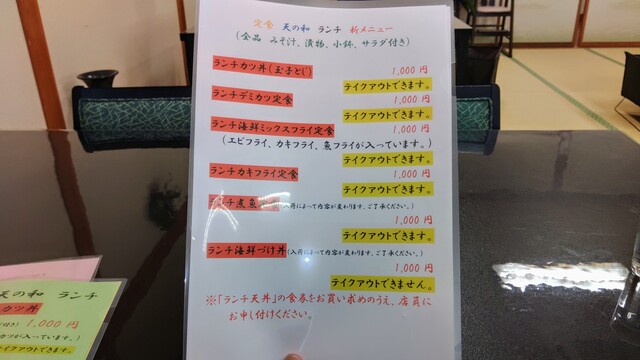 定食 天の和 ランチ 新メニュー
(全品 みそ汁、漬物、小鉢、サラダ付き)
ランチカツ丼(玉子とじ) 1,000 円
テイクアウトできます。
ランチデミカツ定食 1,000 円
テイクアウトできます。
ランチ海鮮ミックスフライ定食 1,000 円
(エビフライ、カキフライ、魚フライが入っています。)
テイクアウトできます。
ランチカキフライ定食 1,000 円
テイクアウトできます。
ランチ煮魚 (入荷によって内容が変わります、ご了承ください。)
1,000 円
テイクアウトできます。
ランチ海鮮づけ丼(入荷によって内容が変わります、ご了承ください。)
1,000 円
テイクアウトできません。
※「ランチ天丼」の食券をお買い求めのうえ、店員に
お申し付けください。
天の和 ランチ
カツ丼
付き) 1,000 円
が入っています。)
テイクアウトできます